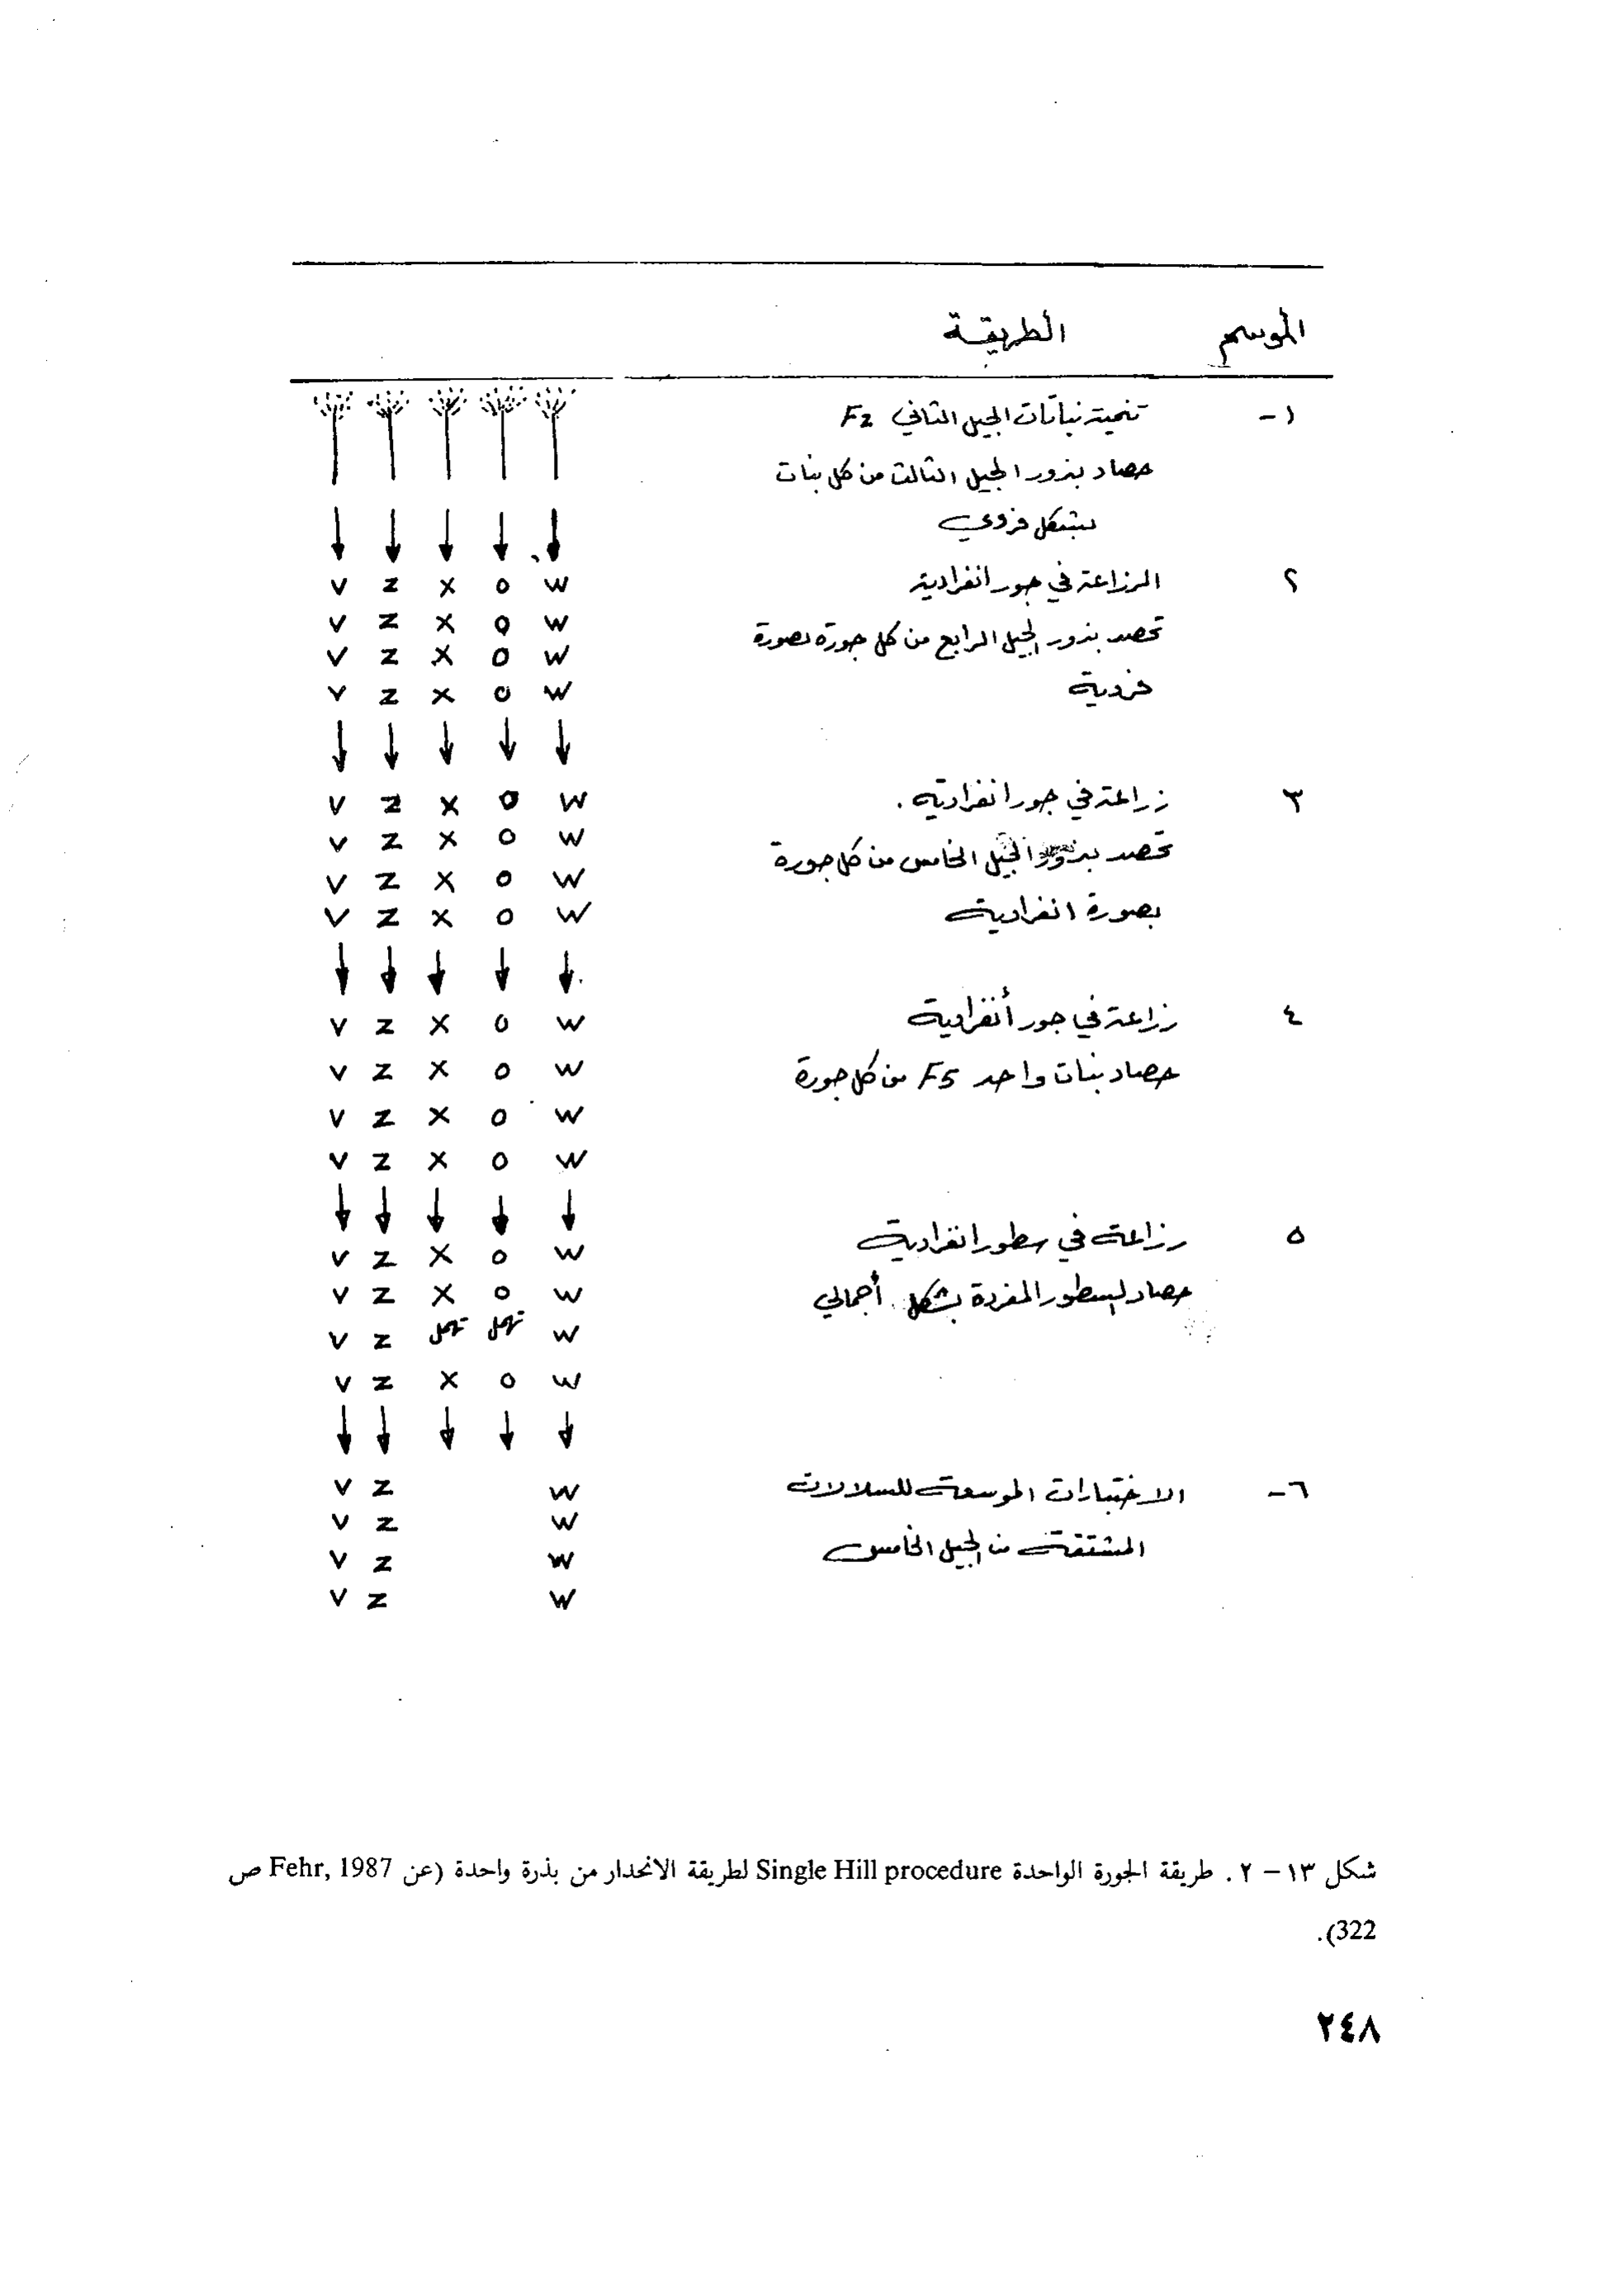 الموسم الطريقة
١- تنمية نباتات الجيل الثاني F2
حصاد بذور الجيل الثالث من كل نبات
بشكل فردي
V Z X O W
٢ الزراعة في جور انفرادية
V Z X O W
تحصد بذور الجيل الرابع من كل جورة بصورة
V Z X O W
فردية
V Z X O W
٣ زراعة في جور انفرادية .
V Z X O W
V Z X O W
تحصد بذور الجيل الخامس من كل جورة
V Z X O W
بصورة انفرادية
V Z X O W
٤ زراعة في جور أنفرادية
V Z X O W
حصاد نبات واحد F5 من كل جورة
V Z X O W
V Z X O W
V Z X O W
٥ زراعة في سطور انفرادية
V Z X O W
حصاد لسطور المفردة بشكل أجمالي
V Z X O W
V Z تهمل تهمل W
V Z X O W
٦- الاختبارات الموسعة للسلالات
V Z W
V Z W
المشتقة من الجيل الخامس
V Z W
V Z W
شكل ١٣ – ٢ . طريقة الجورة الواحدة Single Hill procedure لطريقة الانحدار من بذرة واحدة (عن Fehr, 1987 ص
322).
٢٤٨